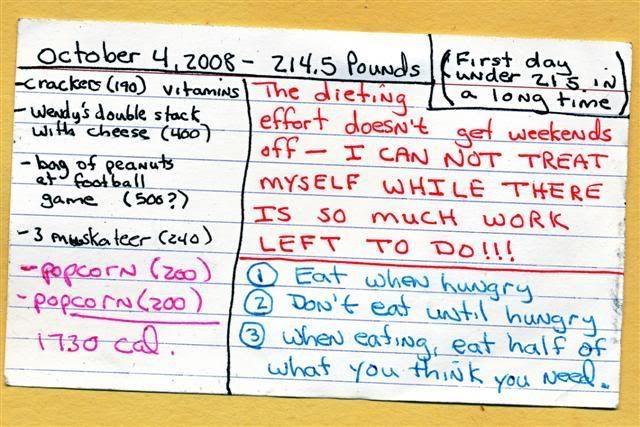 October 4, 2008 - 214.5 Pounds
(First day
under 215 in
a long time)
- crackers (190) vitamins
- Wendy's double stack
with cheese (400)
- bag of peanuts
at football
game (500?)
- 3 muskateer (240)
- popcorn (200)
- popcorn (200)
1730 cal.
The dieting
effort doesn't get weekends
off - I CAN NOT TREAT
MYSELF WHILE THERE
IS SO MUCH WORK
LEFT TO DO!!!
① Eat when hungry
② Don't eat until hungry
③ When eating, eat half of
what you think you need.